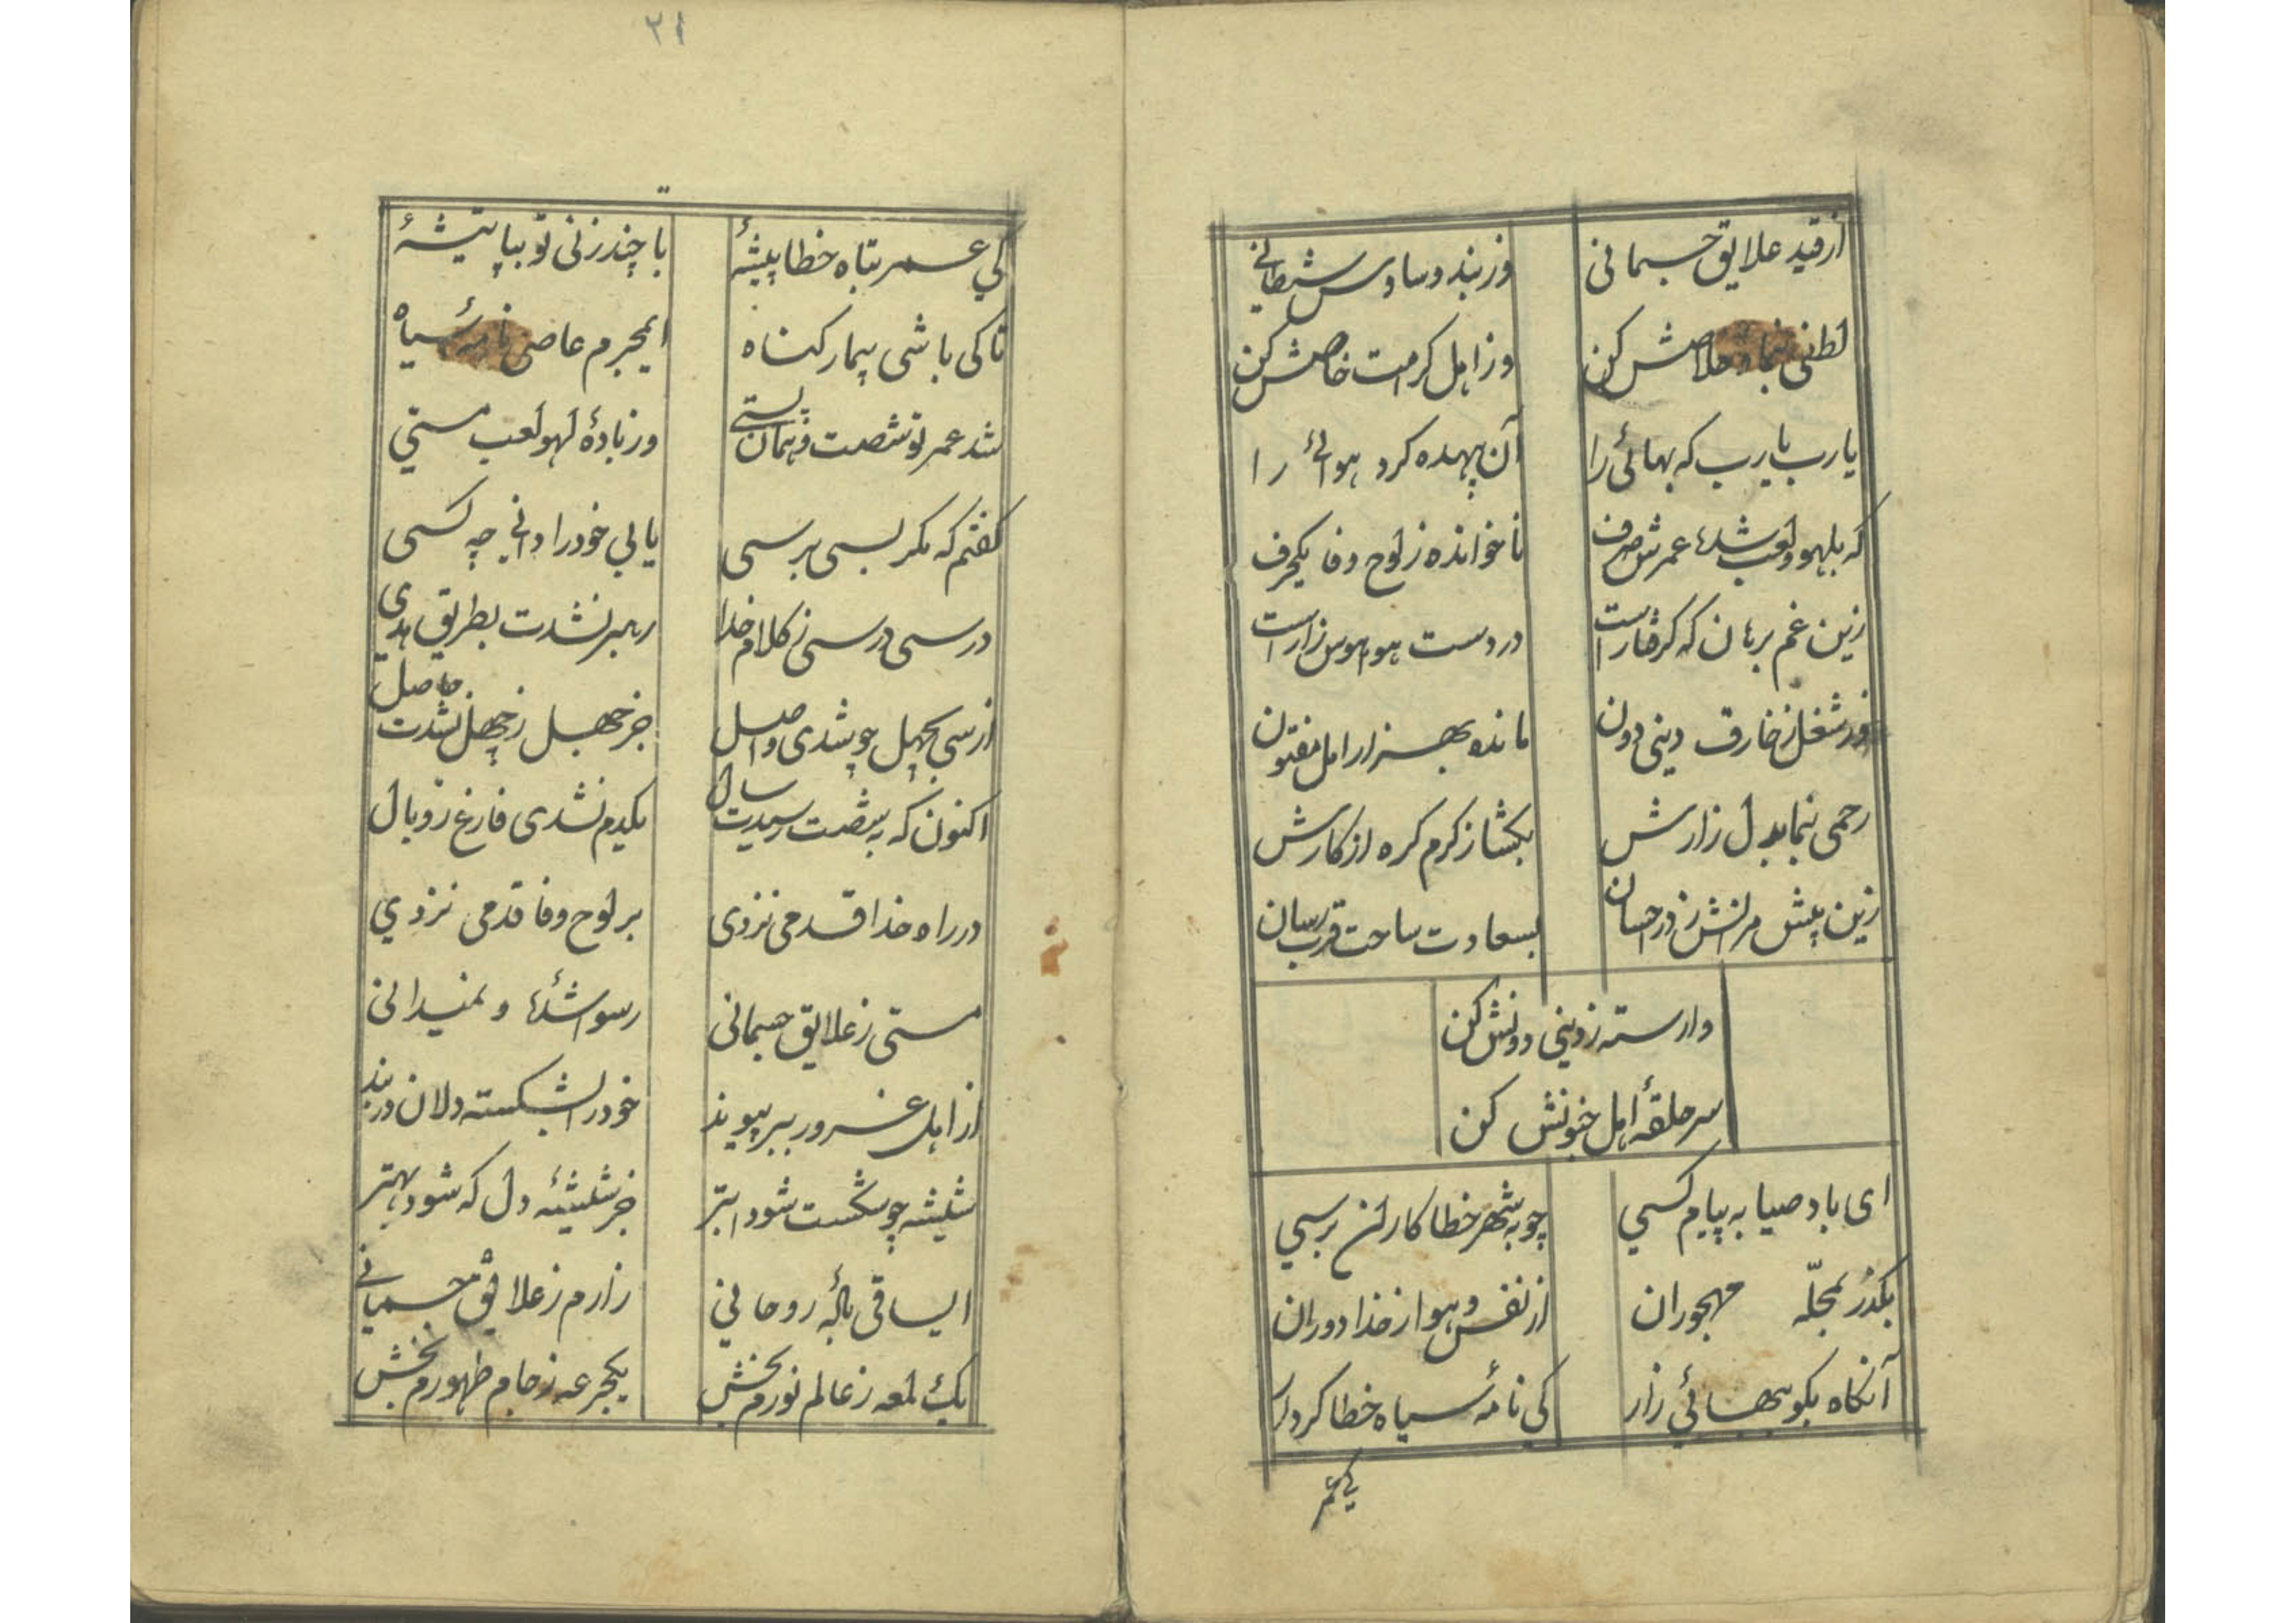 از قید علایق جسمانی
وز بند وساوس شیطانی
لطفی بنما و خلاصش کن
وز اهل کرامت خاصش کن
یا رب یا رب که بهائی را
آن بیهده کرد هوائی را
که بلهو و لعب شده عمرش صرف
ناخوانده ز لوح وفا یکحرف
زین غم برهان که گرفتار است
در دست هوا و هوس زار است
در شغل زخارف دینی دون
مانده بهزار امل مفتون
رحمی بنما بدل زارش
بگشا ز کرم گره از کارش
زین پیش مرانش ز در احسان
بسعادت ساحت قرب رسان
وارسته ز دینی دونش کن
سر حلقهٔ اهل جنونش کن
ای باد صبا به پیام کسی
چو به شهر خطاکاران برسی
بگذر بمحلّه مهجوران
از نفس و هوا از خدا دوران
آنگاه بگو ببهائی زار
کی نامهٔ سیاه خطا کردار
کی عمر
٢١
کی عمر تباه خطا پیشهٔ
تا چند زنی تو بپا تیشهٔ
تا کی باشی بیمار گناه
ایمجرم عاصی نامهٔ سیاه
شد عمر تو شصت و همان پستی
وز بادهٔ لهو لعب مستی
گفتم که مگر بسی برسی
یابی خود را دانی چه کسی
درسی درسی ز کلام خدا
رهبر نشدت بطریق هدی
از سی بچهل چو شدی واصل
جز جهل ز چهل نشدت حاصل
اکنون که به شصت رسیدت سال
یکدم نشدی فارغ ز وبال
در راه خدا قدمی نزدی
بر لوح وفا قدمی نزدی
مستی ز علایق جسمانی
رسوا شدهٔ و نمیدانی
از اهل غرور ببر پیوند
خود را بشکسته دلان دربند
شیشه چو شکست شود ابتر
جز شیشهٔ دل که شود بهتر
ایساقی بادهٔ روحانی
زارم ز علایق جسمانی
یک لمعه ز عالم نورم بخش
یکجرعه ز جام طهورم بخش